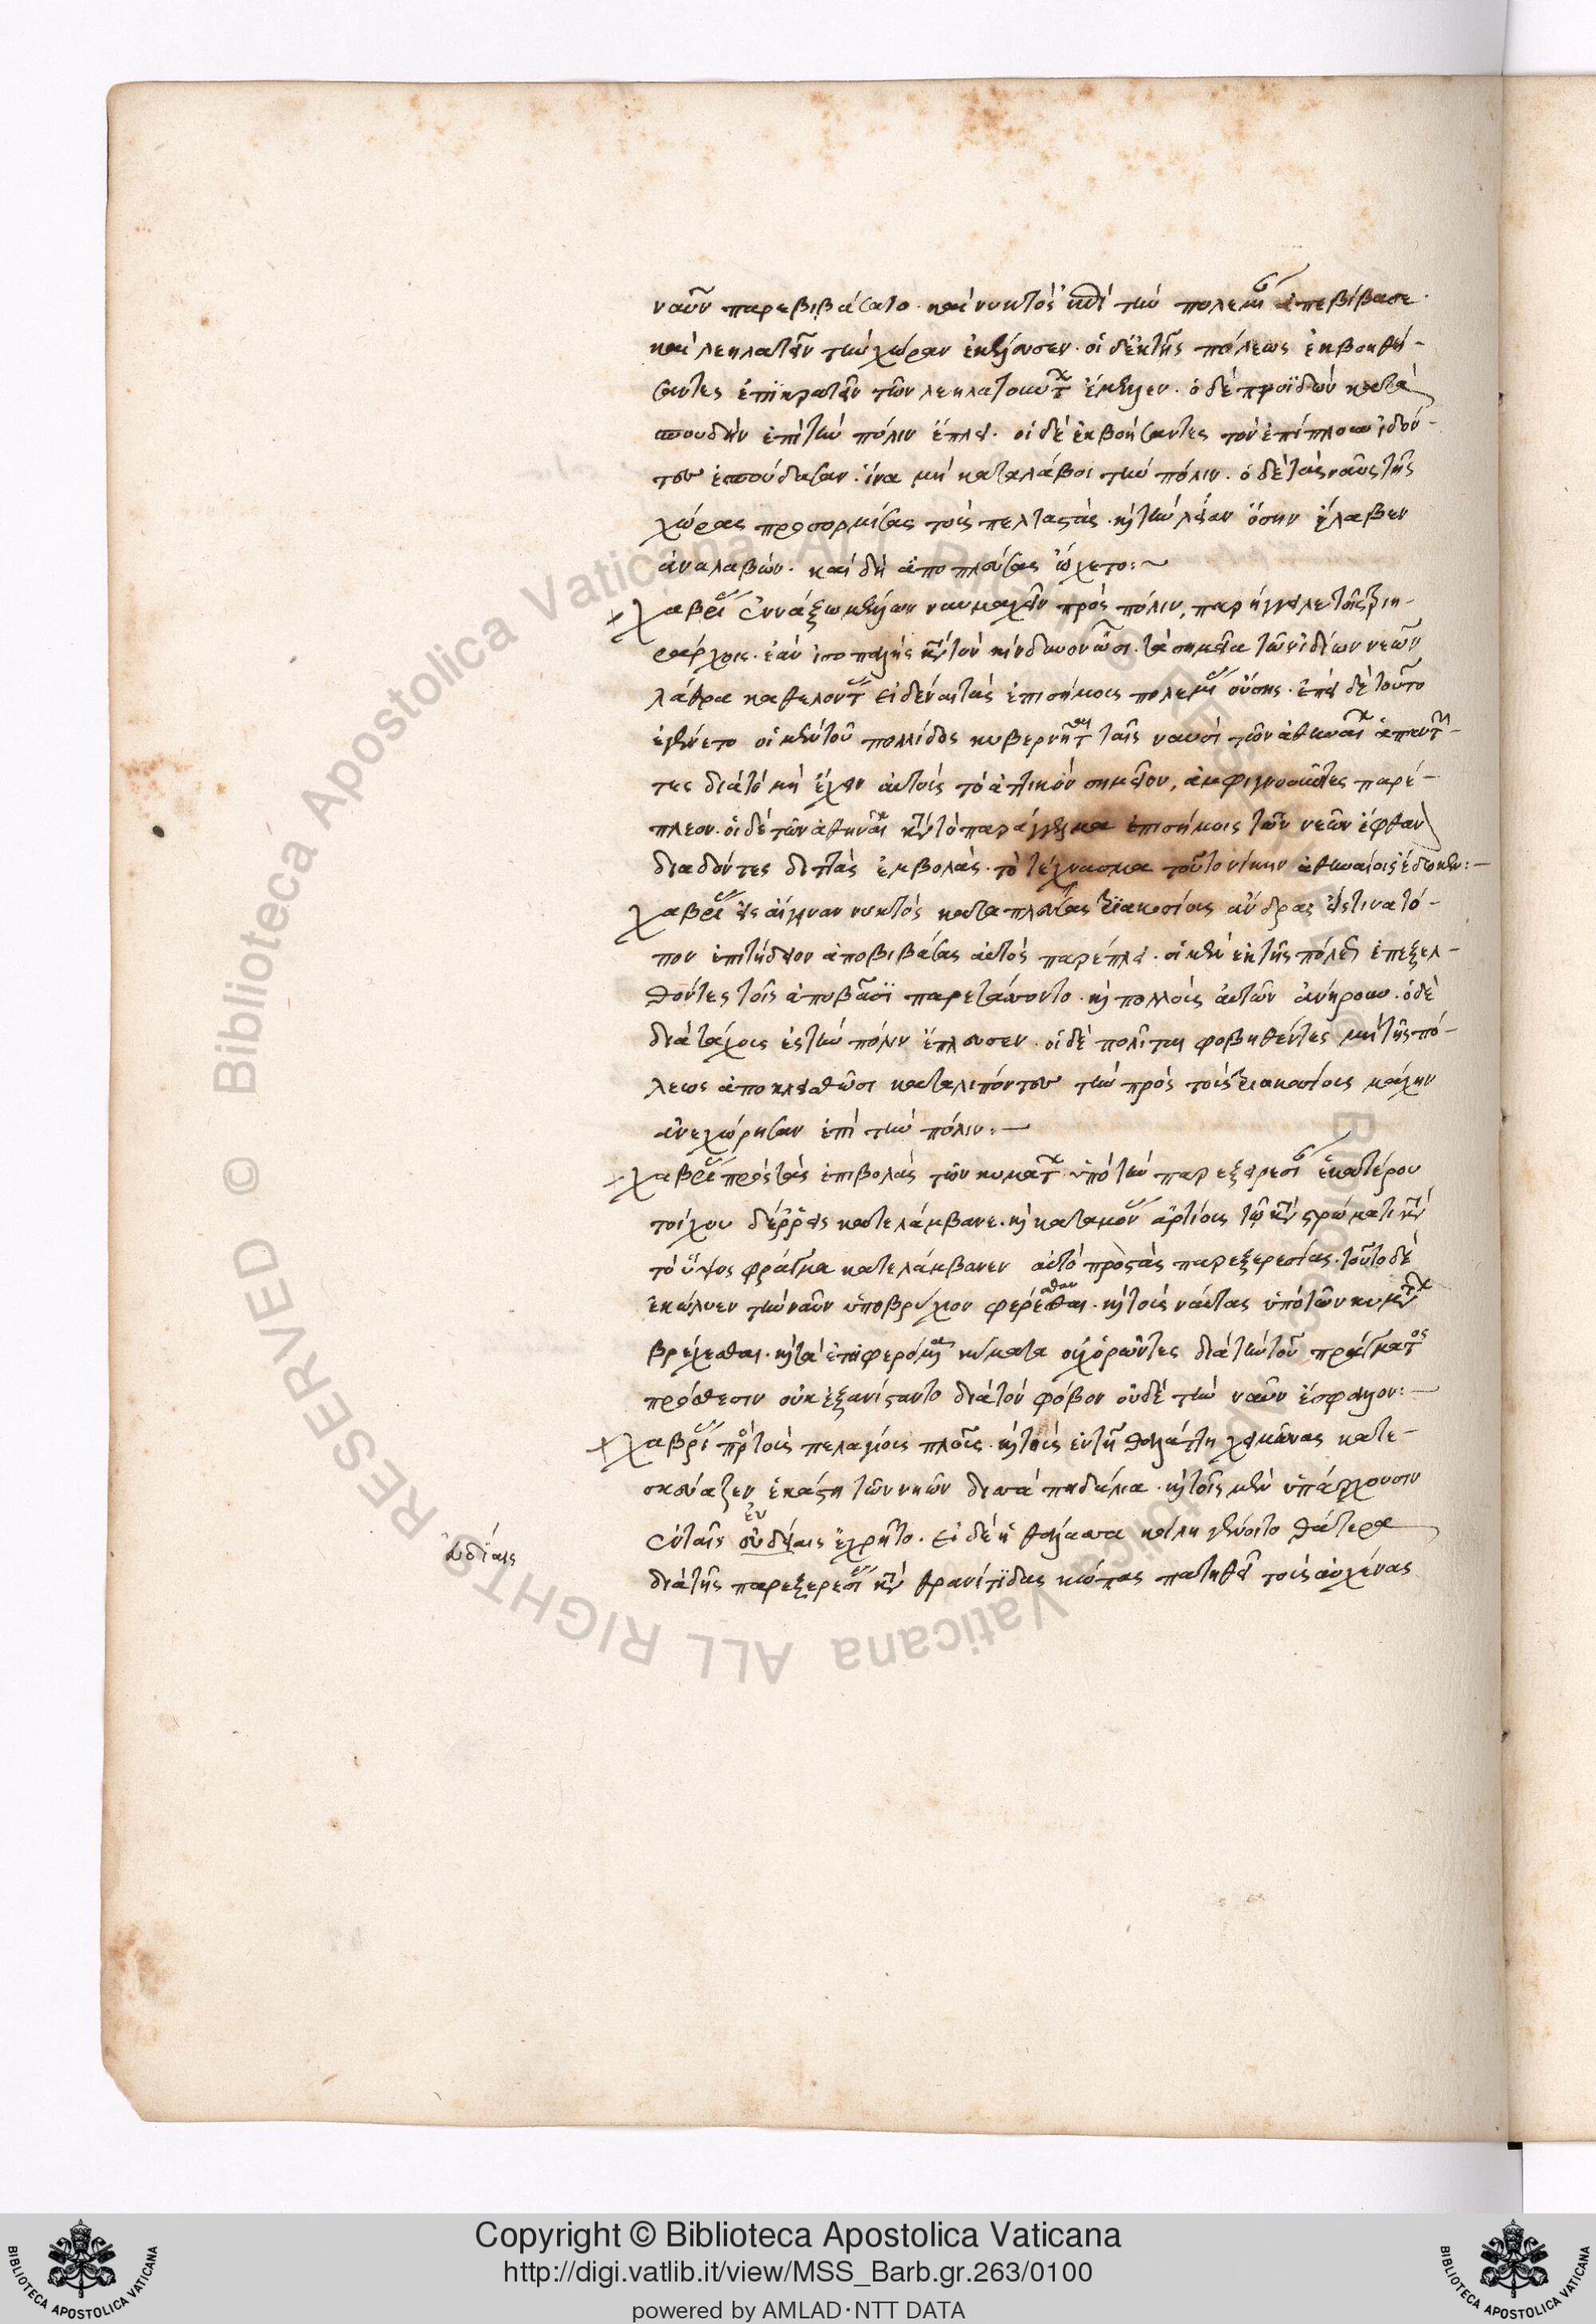 ναῦν παρεβιβάσατο. καὶ νυκτὸς κατὰ τὴν πολεμίαν ἀπεβίβασε.
καὶ λεηλατεῖν τὴν χώραν ἐκέλευσεν. οἱ δ' ἐκ τῆς πόλεως ἐκβοηθή-
σαντες ἐπικρατεῖν τῶν λεηλατούντων ἔμελλεν. ὁ δὲ προϊδὼν κατὰ
σπουδὴν ἐπὶ τὴν πόλιν ἔπλει. οἱ δὲ ἐκβοήσαντες τὸν ἐπίπλουν ἰδόν-
των ἐσπούδασαν. ἵνα μὴ καταλάβοι τὴν πόλιν. ὁ δὲ τὰς ναῦς τῆς
χώρας προσορμίσας τοὺς πελταστὰς. καὶ τὴν λείαν ὅσην ἔλαβεν
ἀναλαβών. καὶ δὴ ἀποπλεύσας ᾤχετο:~
χαβρίας ἐν νάξῳ μέλλων ναυμαχεῖν πρὸς πόλιν, παρήγγειλε τοῖς τριη-
ράρχοις. ἐὰν ἰσοπαλεῖς κατὰ τὸν κίνδυνον ὦσι. τὰ σημεῖα τῶν ἰδίων νεῶν
λάθρα καθελόντας εἰδέναι τὰς ἐπισήμους πολεμίας οὔσης. ἐπεὶ δὲ τοῦτο
ἐγένετο οἱ μὲν τοῦ πόλλιδος κυβερνῆται ταῖς ναυσὶ τῶν ἀθηναίων ἀπαντῶν-
τες διὰ τὸ μὴ ἔχειν αὐτοὺς τὸ ἀττικὸν σημεῖον, ἀμφιγνοοῦντες παρέ-
πλεον. οἱ δὲ τῶν ἀθηναίων κατὰ τὸ παράγγελμα ἐπισήμοις τῶν νεῶν ἔφθαν
διαδόντες διττὰς ἐμβολὰς. τὸ τέχνασμα τοῦτο νίκην ἀθηναίοις ἔδωκεν:—
χαβρίας εἰς αἴγιναν νυκτὸς καταπλεύσας τριακοσίους ἄνδρας εἴς τινα τό-
πον ἐπιτήδειον ἀποβιβάσας αὐτὸς παρέπλει. οἱ μὲν ἐκ τῆς πόλεως ἐπεξελ-
θόντες τοῖς ἀποβᾶσι παρετάσσοντο. καὶ πολλοὺς αὐτῶν ἀνῄρουν. ὁ δὲ
διὰ τάχους ἐς τὴν πόλιν ἔπλευσεν. οἱ δὲ πολῖται φοβηθέντες μὴ τῆς πό-
λεως ἀποκλεισθῶσι καταλιπόντων τὴν πρὸς τοὺς τριακοσίους μάχην
ἀνεχώρησαν ἐπὶ τὴν πόλιν:—
χαβρίας πρὸς τὰς ἐπιβολὰς τῶν κυμάτων ὑπὸ τὴν παρεξειρεσίαν ἑκατέρου
τοίχου δέρρεις κατελάμβανε. καὶ καταμόνας ἀρτίους τῷ κατὰ στρώματι κατὰ
τὸ ὕψος φράγμα κατελάμβανεν αὐτὸ πρὸς τὰς παρεξερεσίας. τοῦτο δὲ
ἐκώλυεν τὴν ναῦν ὑποβρύχιον φέρεσθαι. καὶ τοὺς ναύτας ὑπὸ τῶν κυμάτων
βρέχεσθαι. καὶ τὰ ἐπιφερόμενα κύματα οὐχ ὁρῶντες διὰ τὴν τοῦ πράγματος
πρόθεσιν οὐκ ἐξανίσταντο διὰ τὸν φόβον οὐδὲ τὴν ναῦν ἔσφαλλον:—
χαβρίας πρὸς τοὺς πελαγίους πλοῦς. καὶ τοὺς ἐν τῇ θαλάττῃ χειμῶνας κατε-
σκεύαζεν ἑκάστῃ τῶν νηῶν δισσὰ πηδάλια. καὶ τοῖς μὲν ὑπάρχουσιν
ἐν ταῖς εὐδείαις ἐχρῆτο. εἰ δὲ ἡ θάλασσα κοίλη γένοιτο θάτερα
εὐδίαις
διὰ τῆς παρεξερεσίας κατὰ θρανίτιδας κώπας πατηθεῖ τοὺς αὐχένας
Copyright © Biblioteca Apostolica Vaticana
http://digi.vatlib.it/view/MSS_Barb.gr.263/0100
powered by AMLAD·NTT DATA